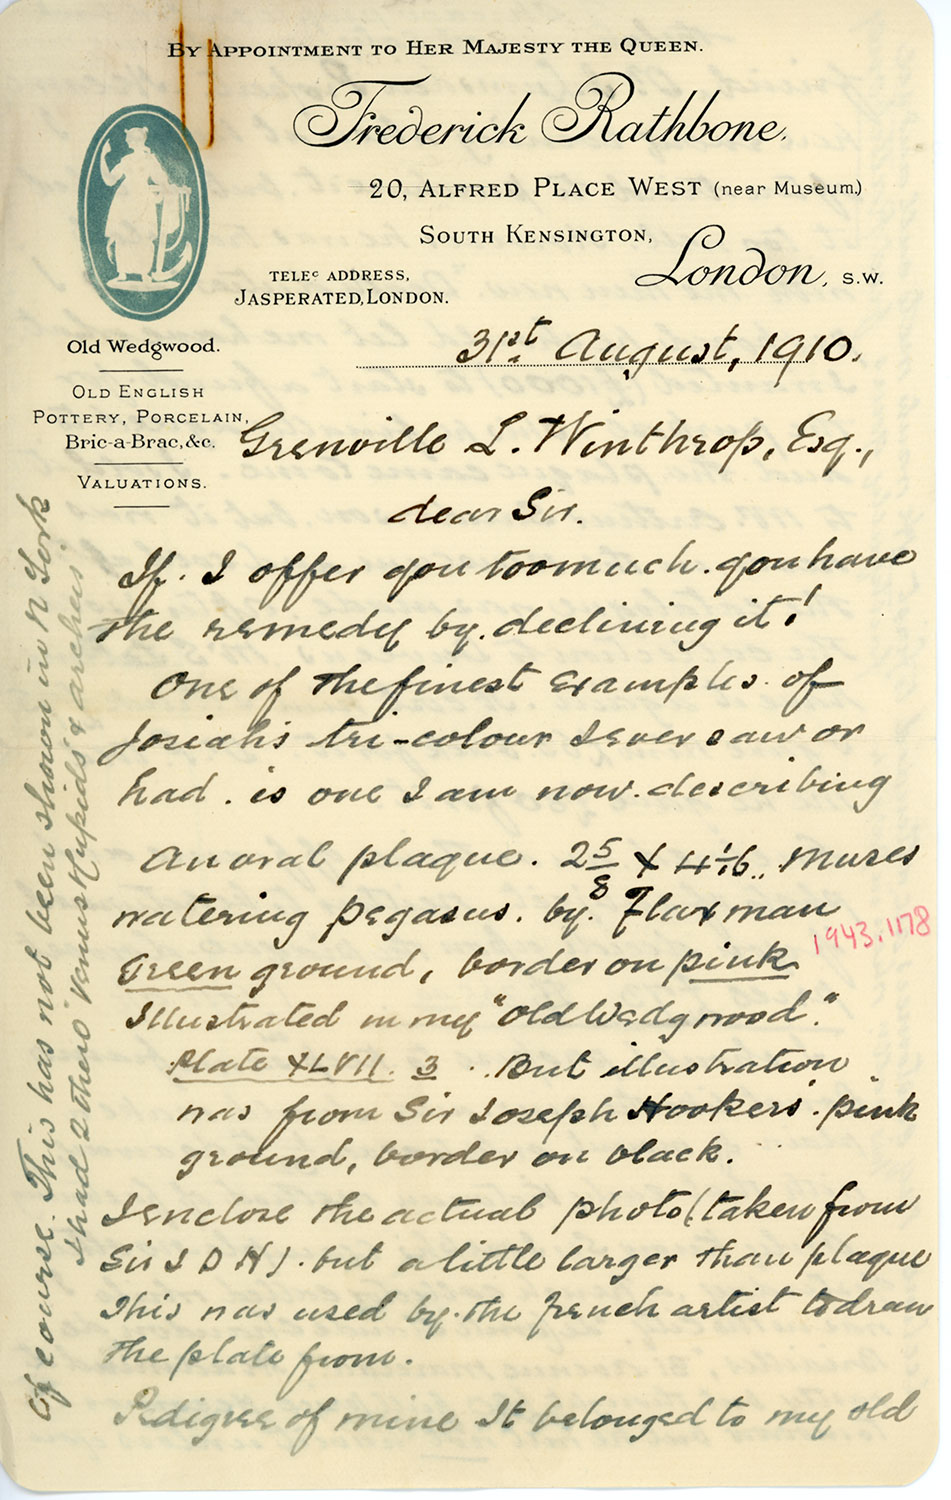 By Appointment to Her Majesty the Queen.
Frederick Rathbone.
20, Alfred Place West (near Museum.)
South Kensington,
London, S.W.
Teleᶜ Address,
Jasperated, London.
Old Wedgwood.
Old English
Pottery, Porcelain,
Bric-a-Brac, &c.
Valuations.
31st August, 1910.
Grenville L. Winthrop, Esq.,
dear Sir.
If. I offer you too much. you have
the remedy by. declining it!
One of the finest examples. of
Josiah's tri-colour I ever saw or
had. is one I am now. describing
An oval plaque. 2 5/8 X 4 1/6,, Muses
watering Pegasus. by. Flaxman
Green ground, border on pink.
1943.1178
Illustrated in my "Old Wedgwood."
Plate XLVII. 3. But illustration
was from Sir Joseph Hookers'. pink
ground, border on black.
I enclose the actual photo (taken from
Sir J D H). but a little larger than plaque
This was used by. the french artist to draw
the plate from.
Pedigree of mine It belonged to my old
Of course. This has not been shown in N York
I had 2 there 'Venus & Cupids' & arches